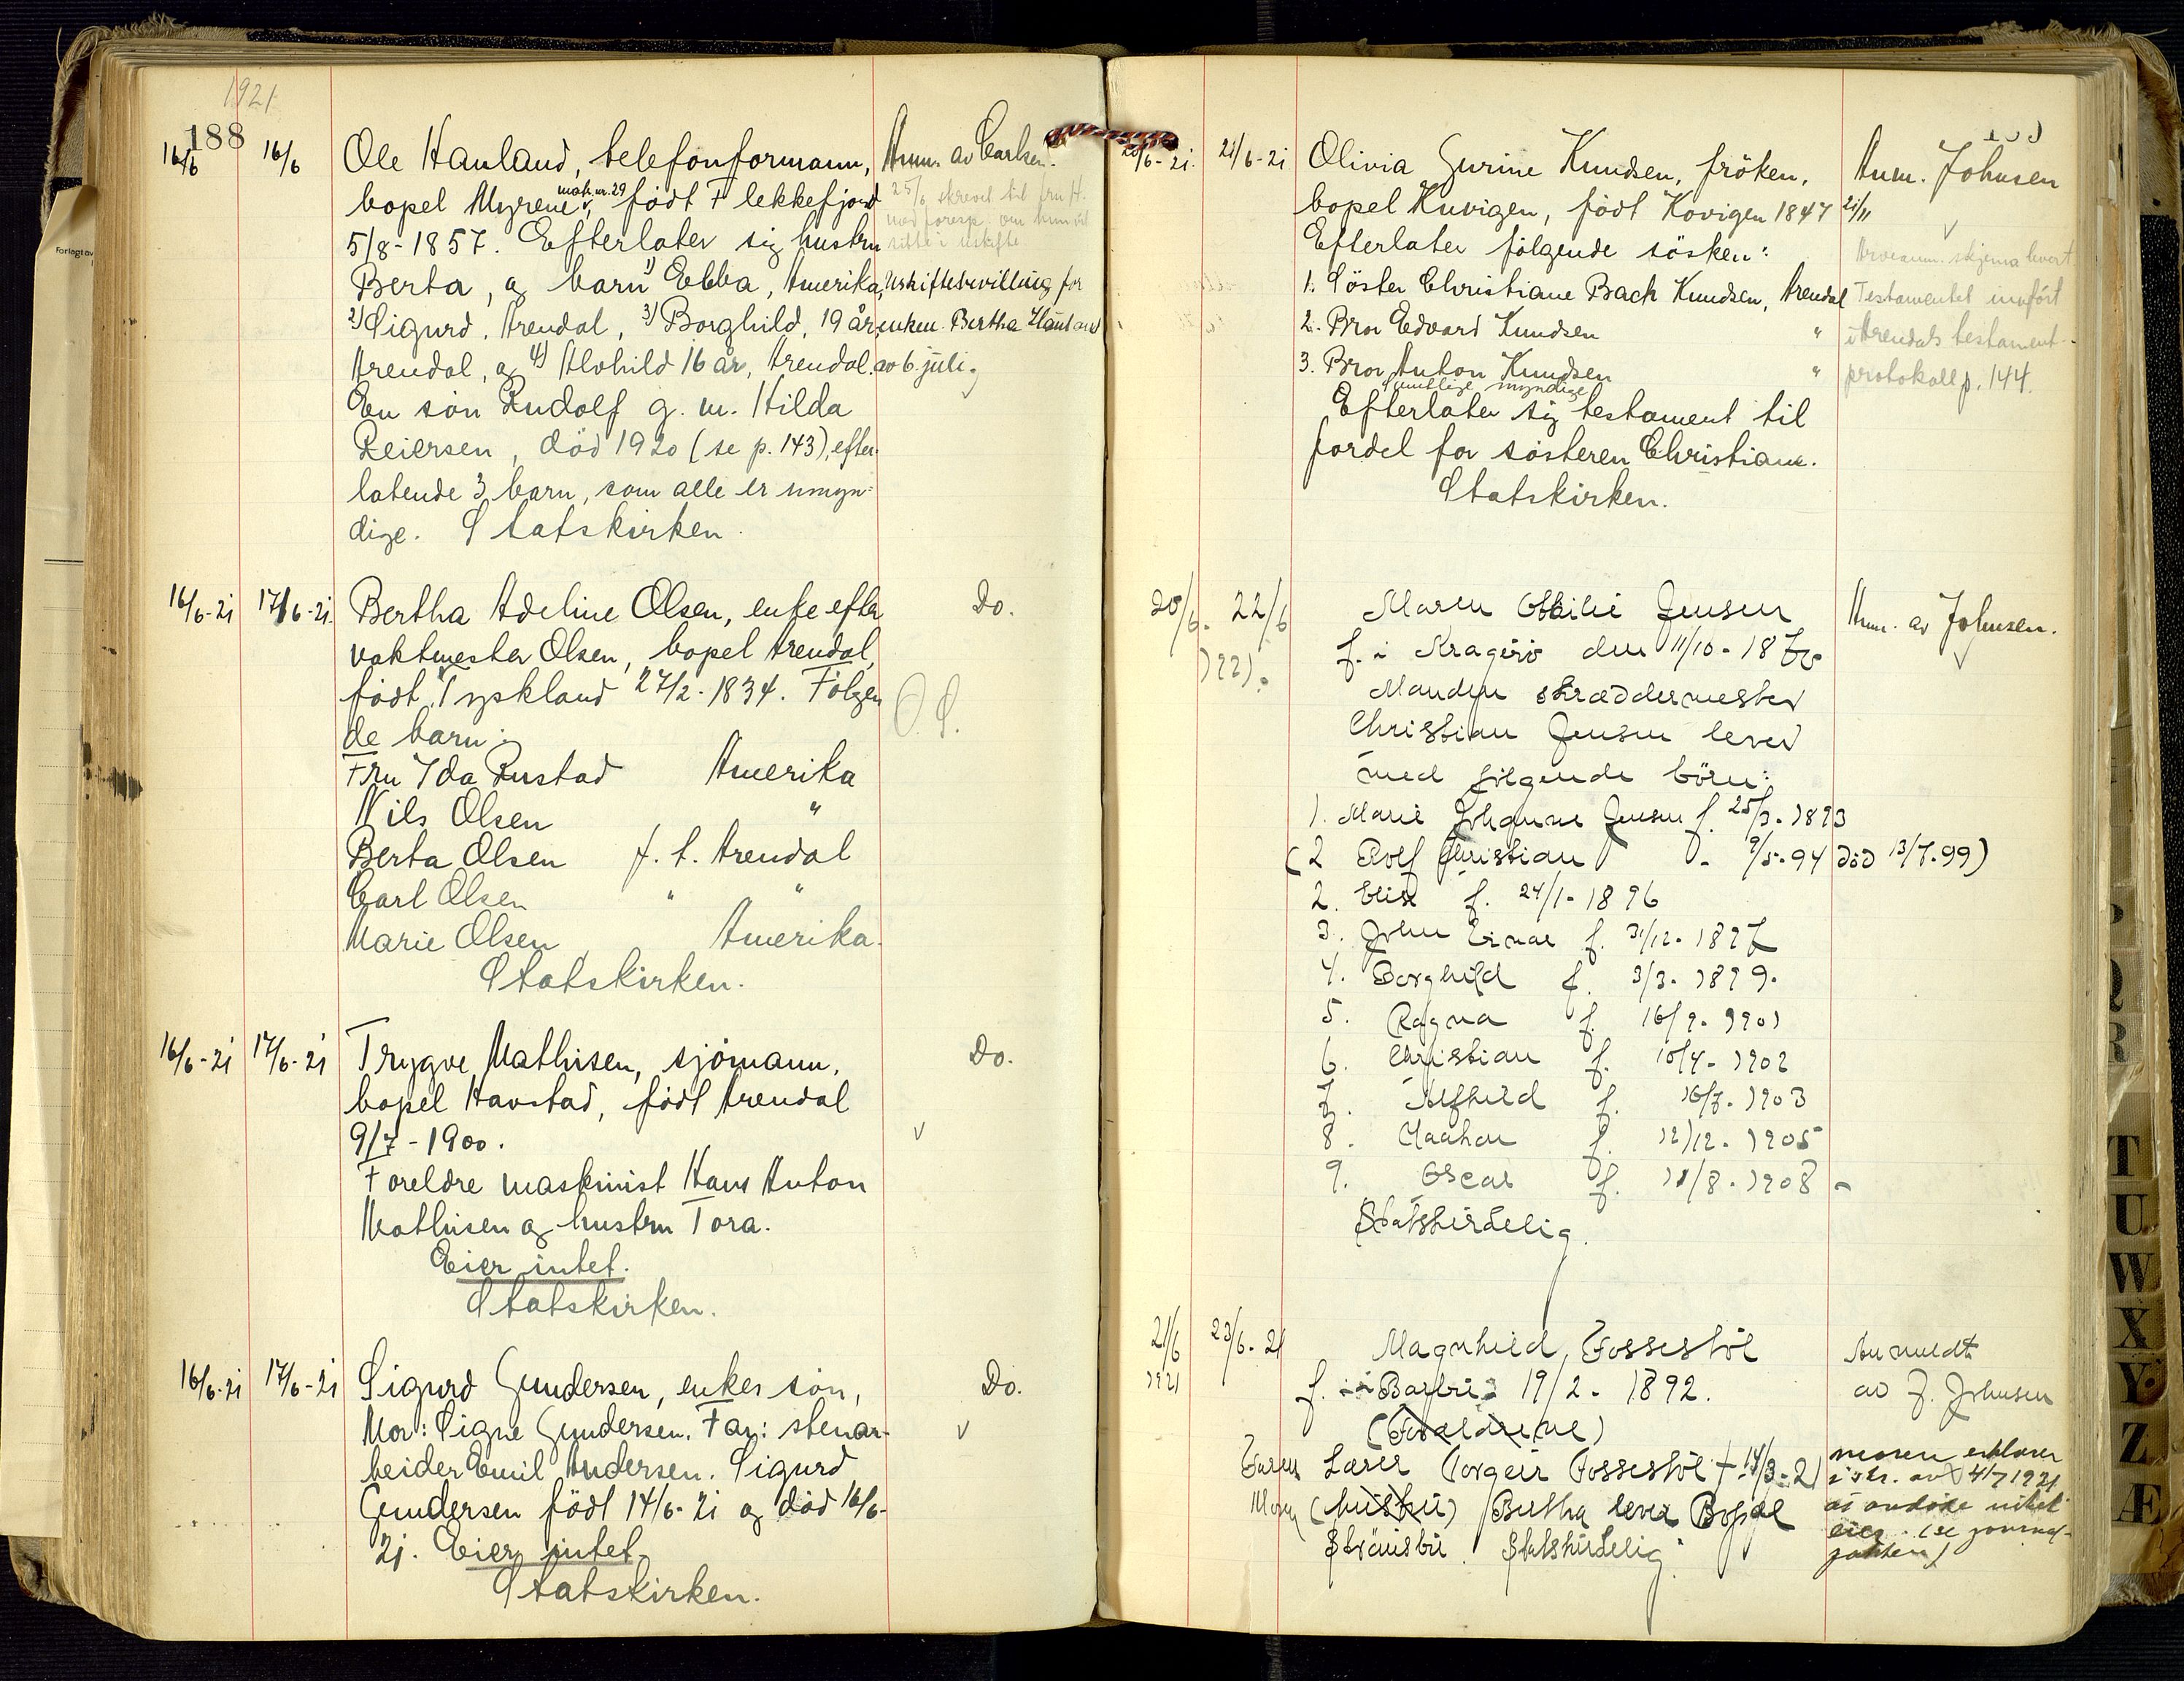 1921
188
16/6 16/6 Ole Hauland, telefonformann, Anm. av Carlsen.
bopel Myrene matr. nr. 29, født Flekkefjord 25/6 skrevet til fru H.
5/8-1857. Efterlater sig hustru med foresp. om hun vil
sitte i uskifte
Berta, og barn 1) Ebba, Amerika, Uskiftebevilling for
2) Sigurd, Arendal, 3) Borghild, 19 år, enken Bertha Hauland
Arendal, og 4) Alvhild 16 år, Arendal. av 6. juli.
En søn Rudolf g. m. Hilda
Reiersen, død 1920 (se p. 143), efter-
latende 3 barn, som alle er umyn-
dige. Statskirken.
16/6-21 17/6-21. Bertha Adeline Olsen, enke efter Do.
vaktmester Olsen, bopel Arendal,
født i Tyskland 27/2-1834. Følgen O.S.
de barn:
Fru Ida Rustad Amerika
Nils Olsen "
Berta Olsen f. t. Arendal
Carl Olsen " "
Marie Olsen Amerika.
Statskirken.
16/6-21 17/6-21 Trygve Mathisen, sjømann, Do.
bopel Havstad, født Arendal
9/7-1900. v
Foreldre maskinist Hans Anton
Mathisen og hustru Tora.
Eier intet.
Statskirken.
16/6-21 17/6-21 Sigurd Gundersen, enkes søn, Do.
Mor: Signe Gundersen. Far: stenar- v
beider Emil Andersen. Sigurd
Gundersen født 14/6-21 og død 16/6-
21. Eier intet.
Statskirken.
20/6-21. 21/6-21 Olivia Gurine Knudsen, frøken, Anm. Johnsen
bopel Kuvigen, født Kovigen 1847 21/11
Efterlater følgende søsken: v
Arveanm. skjema levert.
1. Søster Christiane Bach Knudsen, Arendal Testamentet innført
2. Bror Edvard Knudsen " i Arendals testament-
3. Bror Anton Knudsen " protokoll p. 144.
samtlige myndige
Efterlater sig testament til
fordel for søsteren Christiane.
Statskirken.
20/6. 22/6 Maren Ottilie Jensen Anm. av Johnsen.
f. i Kragerø den 11/10-18 v
1921. Manden skræddermester
Christian Jensen lever
med følgende børn:
1. Marie Johanne Jensen f. 25/3. 1893
(2 Rolf Christian - 9/5-94 død 13/7.99)
2. Elise f. 24/1-1896
3. John Einar f. 31/12-1897
4. Borghild f. 3/3. 1899.
5. Ragna f. 16/9. 1901
6. Christian f. 10/4-1902
7. Alfhild f. 16/7. 1903
8. Haakon f. 12/12. 1905
9. Oscar f. 11/8. 1908
Statskirkelig.
21/6 23/6-21 Magnhild Fossestøl Anmeldt
1921 f. i 19/2-1892. av J. Johnsen
(Forældrene)
Faren Lærer Torgeir Fossestøl † 14/3-21 moren erklærer
i skr. av 4/7 1921
Moren (hustru) Bertha lever Bopæl at avdøde intet
Strømsbu. Statskirkelig. eier (se journal-